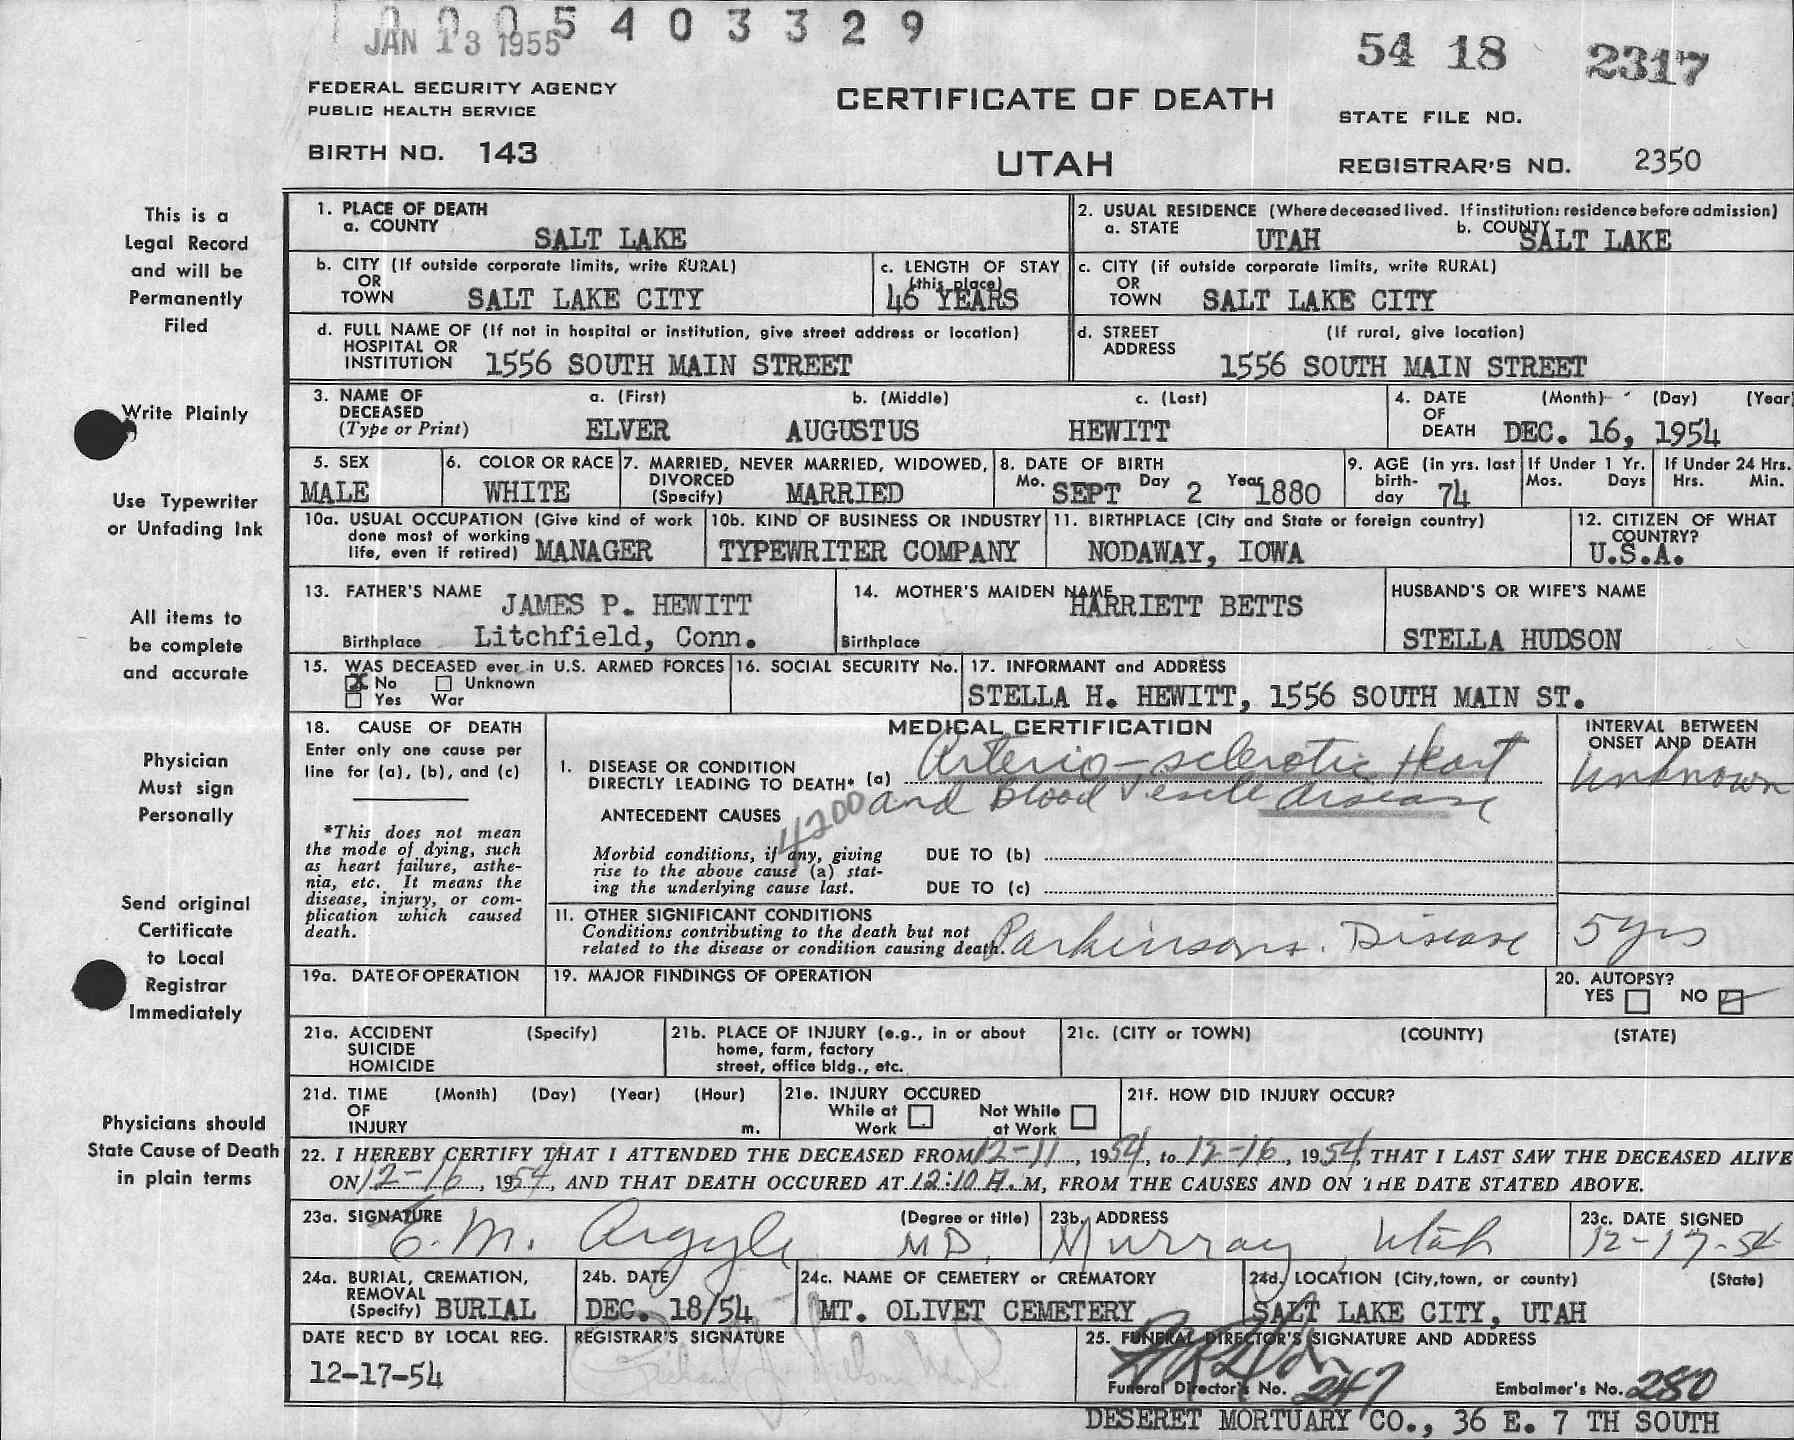 0005403329
JAN 13 1955
54 18 2317
FEDERAL SECURITY AGENCY
PUBLIC HEALTH SERVICE
CERTIFICATE OF DEATH
STATE FILE NO.
BIRTH NO. 143
UTAH
REGISTRAR'S NO. 2350
This is a
Legal Record
and will be
Permanently
Filed
Write Plainly
Use Typewriter
or Unfading Ink
All items to
be complete
and accurate
Physician
Must sign
Personally
Send original
Certificate
to Local
Registrar
Immediately
Physicians should
State Cause of Death
in plain terms
1. PLACE OF DEATH
a. COUNTY SALT LAKE
2. USUAL RESIDENCE (Where deceased lived. If institution: residence before admission)
a. STATE UTAH b. COUNTY SALT LAKE
b. CITY (If outside corporate limits, write RURAL)
OR
TOWN SALT LAKE CITY
c. LENGTH OF STAY
(this place)
46 YEARS
c. CITY (if outside corporate limits, write RURAL)
OR
TOWN SALT LAKE CITY
d. FULL NAME OF (If not in hospital or institution, give street address or location)
HOSPITAL OR
INSTITUTION 1556 SOUTH MAIN STREET
d. STREET (If rural, give location)
ADDRESS
1556 SOUTH MAIN STREET
3. NAME OF a. (First) b. (Middle) c. (Last)
DECEASED
(Type or Print) ELVER AUGUSTUS HEWITT
4. DATE (Month) (Day) (Year)
OF
DEATH DEC. 16, 1954
5. SEX
MALE
6. COLOR OR RACE
WHITE
7. MARRIED, NEVER MARRIED, WIDOWED,
DIVORCED
(Specify) MARRIED
8. DATE OF BIRTH
Mo. SEPT Day 2 Year 1880
9. AGE (in yrs. last
birth-
day 74
If Under 1 Yr.
Mos. Days
If Under 24 Hrs.
Hrs. Min.
10a. USUAL OCCUPATION (Give kind of work
done most of working
life, even if retired) MANAGER
10b. KIND OF BUSINESS OR INDUSTRY
TYPEWRITER COMPANY
11. BIRTHPLACE (City and State or foreign country)
NODAWAY, IOWA
12. CITIZEN OF WHAT
COUNTRY?
U.S.A.
13. FATHER'S NAME JAMES P. HEWITT
Birthplace Litchfield, Conn.
14. MOTHER'S MAIDEN NAME HARRIETT BETTS
Birthplace
HUSBAND'S OR WIFE'S NAME
STELLA HUDSON
15. WAS DECEASED ever in U.S. ARMED FORCES
X No Unknown
Yes War
16. SOCIAL SECURITY No.
17. INFORMANT and ADDRESS
STELLA H. HEWITT, 1556 SOUTH MAIN ST.
18. CAUSE OF DEATH
Enter only one cause per
line for (a), (b), and (c)
*This does not mean
the mode of dying, such
as heart failure, asthe-
nia, etc. It means the
disease, injury, or com-
plication which caused
death.
MEDICAL CERTIFICATION
INTERVAL BETWEEN
ONSET AND DEATH
I. DISEASE OR CONDITION
DIRECTLY LEADING TO DEATH* (a) Arterio-sclerotic Heart
and Blood disease
Unknown
4200
ANTECEDENT CAUSES
Morbid conditions, if any, giving
rise to the above cause (a) stat-
ing the underlying cause last.
DUE TO (b)
DUE TO (c)
II. OTHER SIGNIFICANT CONDITIONS
Conditions contributing to the death but not
related to the disease or condition causing death. Parkinsons. Disease
5 yrs
19a. DATE OF OPERATION
19. MAJOR FINDINGS OF OPERATION
20. AUTOPSY?
YES NO
21a. ACCIDENT (Specify)
SUICIDE
HOMICIDE
21b. PLACE OF INJURY (e.g., in or about
home, farm, factory
street, office bldg., etc.
21c. (CITY or TOWN) (COUNTY) (STATE)
21d. TIME (Month) (Day) (Year) (Hour)
OF
INJURY m.
21e. INJURY OCCURED
While at Not While
Work at Work
21f. HOW DID INJURY OCCUR?
22. I HEREBY CERTIFY THAT I ATTENDED THE DECEASED FROM 12-11, 1954, to 12-16, 1954, THAT I LAST SAW THE DECEASED ALIVE
ON 12-16, 1954, AND THAT DEATH OCCURED AT 12:10 A. M, FROM THE CAUSES AND ON THE DATE STATED ABOVE.
23a. SIGNATURE (Degree or title)
E. M. Argyle MD.
23b. ADDRESS
Murray, Utah
23c. DATE SIGNED
12-17-54
24a. BURIAL, CREMATION,
REMOVAL
(Specify) BURIAL
24b. DATE
DEC. 18/54
24c. NAME OF CEMETERY or CREMATORY
MT. OLIVET CEMETERY
24d. LOCATION (City, town, or county) (State)
SALT LAKE CITY, UTAH
DATE REC'D BY LOCAL REG.
12-17-54
REGISTRAR'S SIGNATURE
25. FUNERAL DIRECTOR'S SIGNATURE AND ADDRESS
Funeral Director's No. 247 Embalmer's No. 280
DESERET MORTUARY CO., 36 E. 7 TH SOUTH